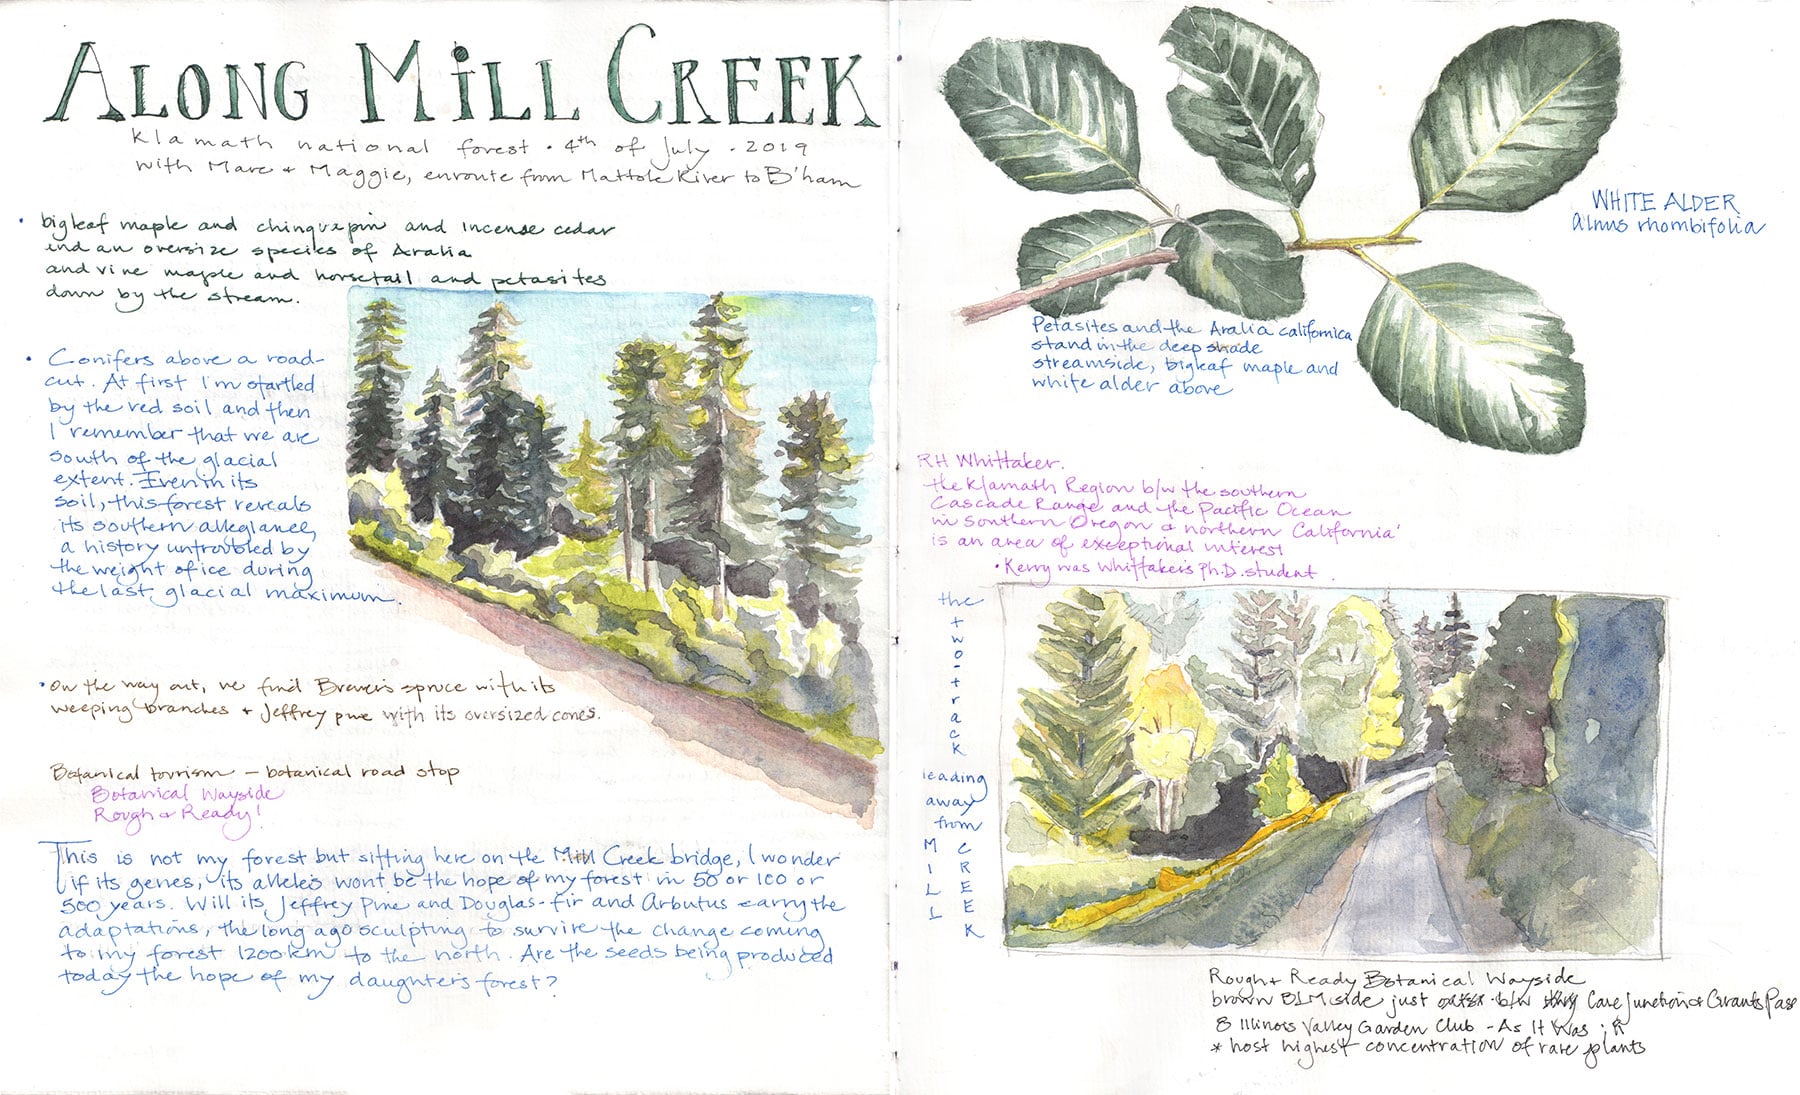 ALONG MiLL CREEK
Klamath national forest · 4th of July · 2019
with Marc + Maggie, enroute from Mattole River to B'ham
• bigleaf maple and chinquepin and incense cedar
and an oversize species of Aralia
and vine maple and horsetail and petasites
down by the stream.
• Conifers above a road-
cut. At first I'm startled
by the red soil and then
I remember that we are
south of the glacial
extent. Even in its
soil, this forest reveals
its southern allegiance,
a history untroubled by
the weight of ice during
the last glacial maximum.
• On the way out, we find Brewer's spruce with its
weeping branches + Jeffrey pine with its oversized cones.
Botanical tourism – botanical road stop
Botanical Wayside
Rough & Ready!
This is not my forest but sitting here on the Mill Creek bridge, I wonder
if its genes, its alleles wont be the hope of my forest in 50 or 100 or
500 years. Will its Jeffrey Pine and Douglas-fir and Arbutus carry the
adaptations, the long ago sculpting to survive the change coming
to my forest 1200 km to the north. Are the seeds being produced
today the hope of my daughter's forest?
WHITE ALDER
Alnus rhombifolia
Petasites and the Aralia californica
stand in the deep shade
streamside, bigleaf maple and
white alder above
RH Whittaker.
the Klamath Region b/w the southern
Cascade Range and the Pacific Ocean
in Southern Oregon & northern California'
is an area of exceptional interest
• Kerry was Whittaker's Ph.D. student
the two-track
leading
away
from
MILL CREEK
Rough + Ready Botanical Wayside
brown BLM side just b/w Cave Junction & Grants Pass
8 Illinois Valley Garden Club - As It Was
* host highest concentration of rare plants